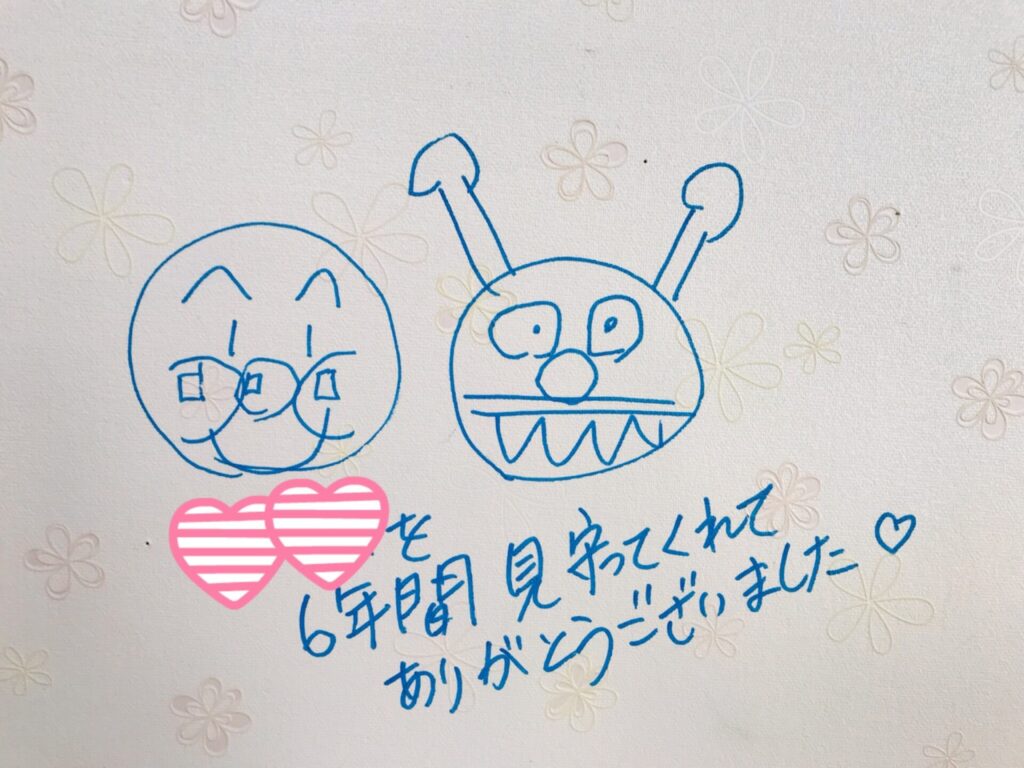 を
6年間見守ってくれて
ありがとうございました♡